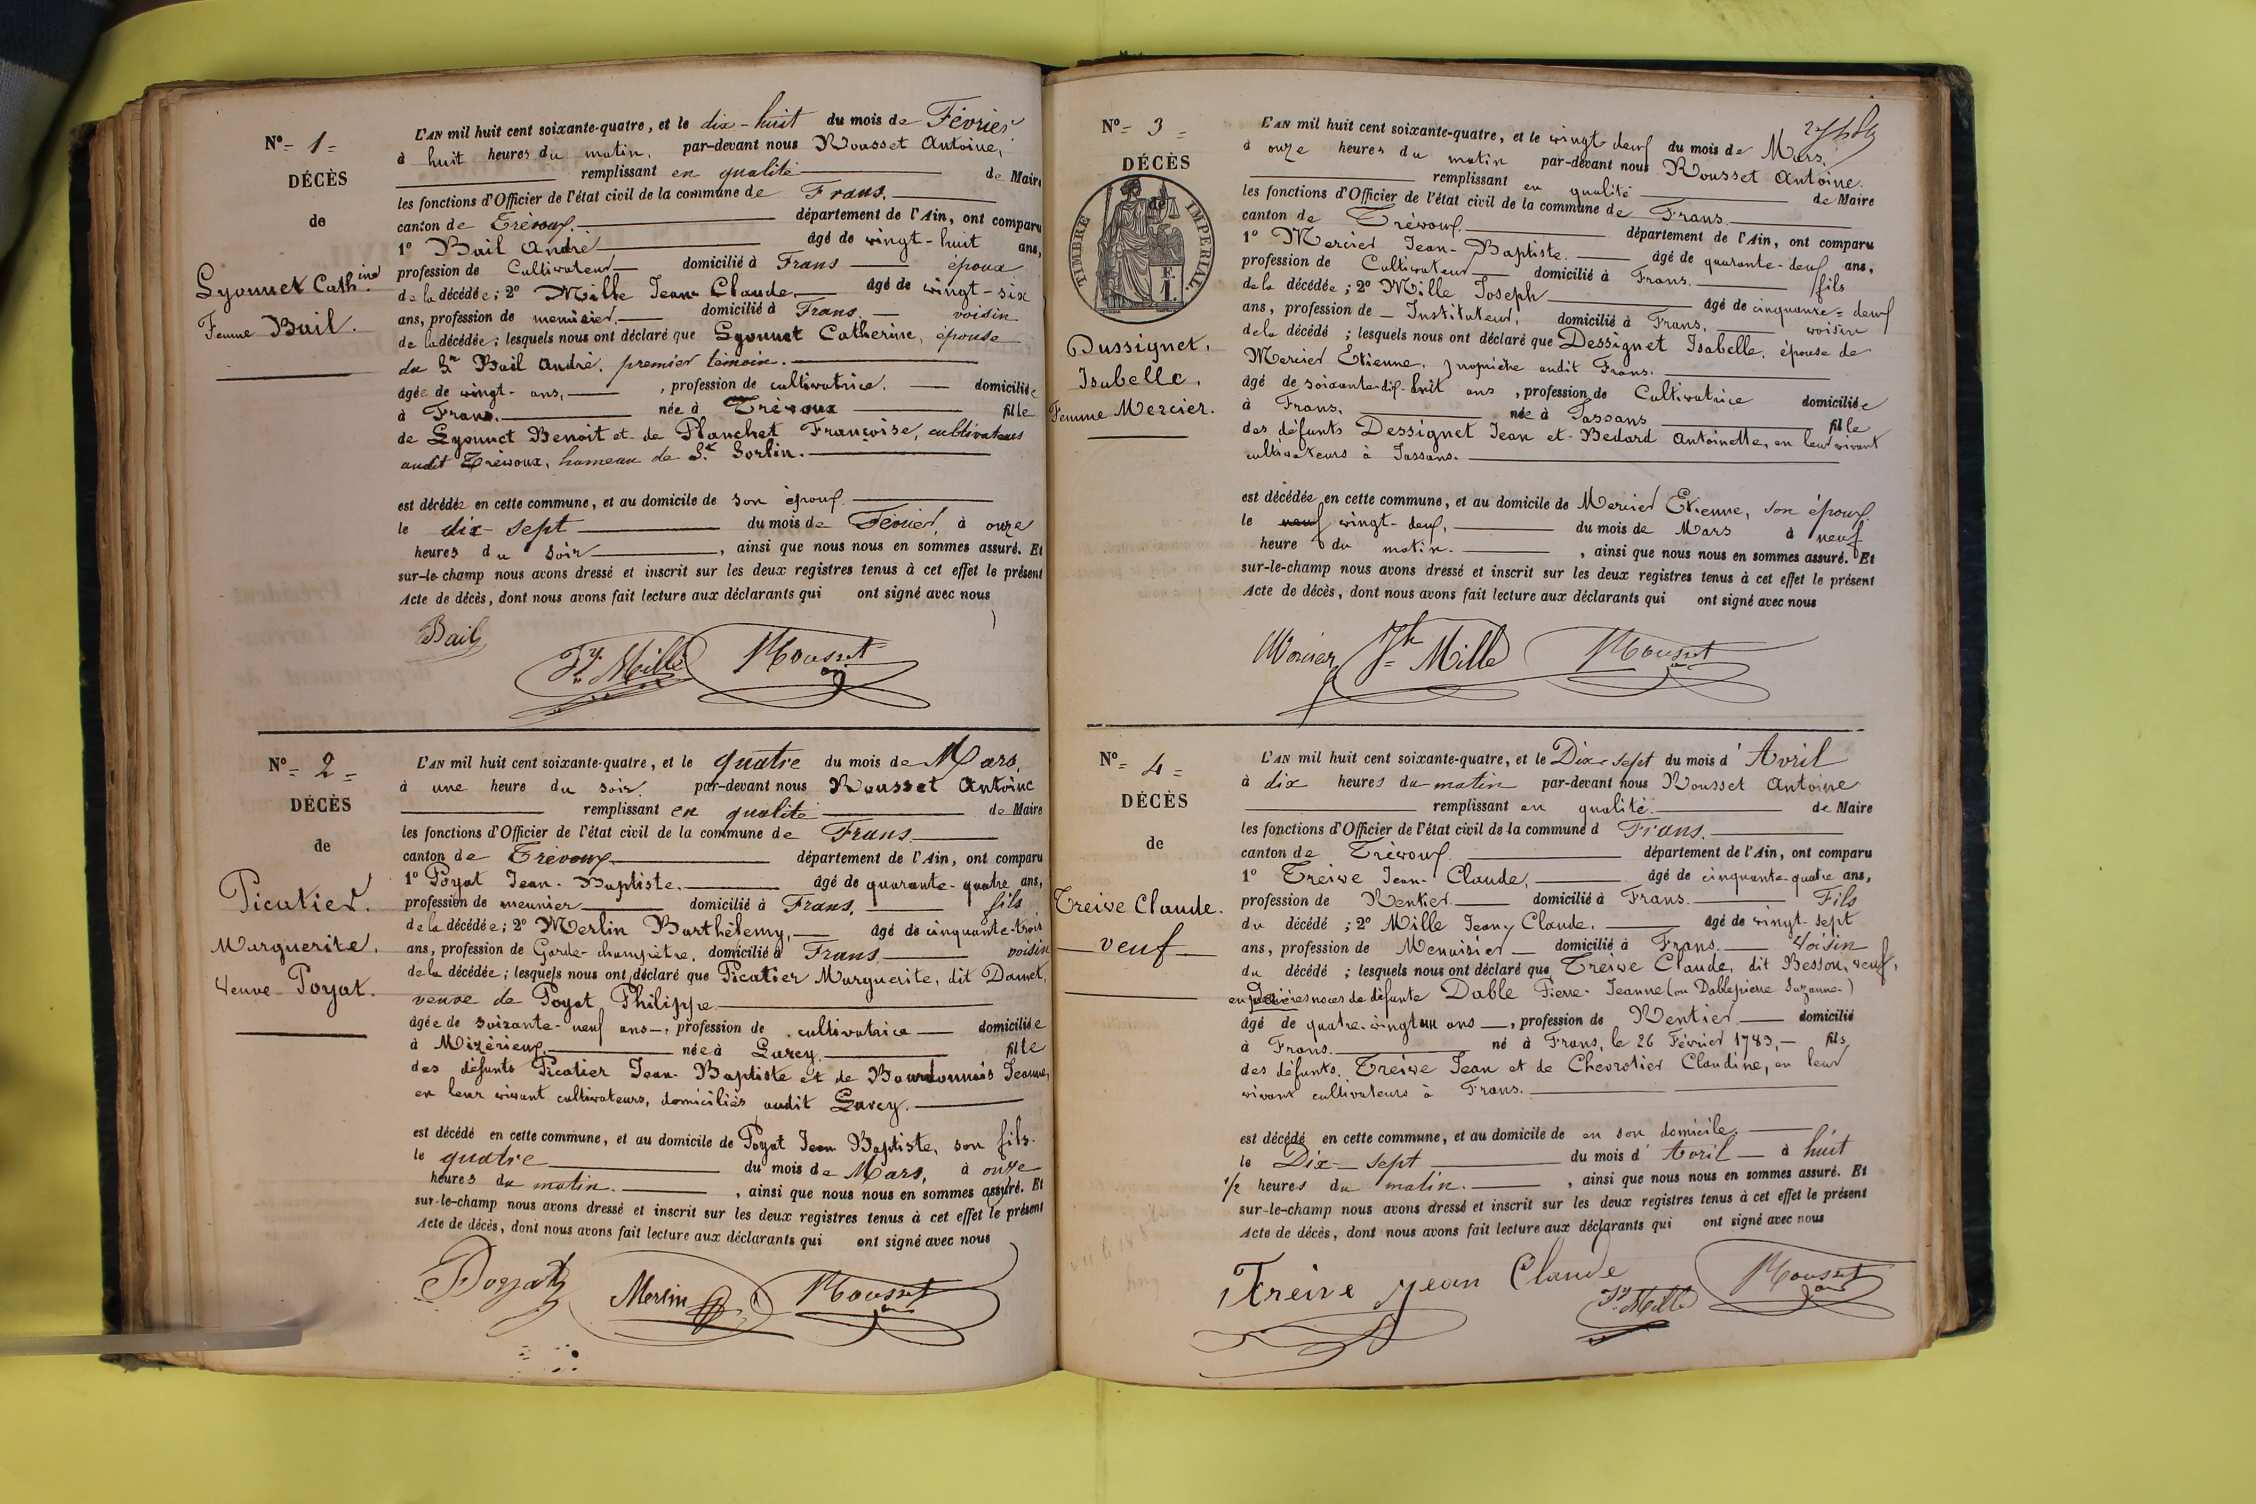 N° = 1 =
DÉCÈS
de
Lyonnet Cath.ine
Femme Bail.
L'AN mil huit cent soixante-quatre, et le dix-huit du mois de Février
à huit heures du matin, par-devant nous Rousset Antoine,
remplissant en qualité de Maire
les fonctions d'Officier de l'état civil de la commune de Frans.
canton de Trévoux. département de l'Ain, ont comparu
1° Bail André âgé de vingt-huit ans,
profession de Cultivateur domicilié à Frans époux
de la décédée; 2° Mille Jean Claude, âgé de vingt-six
ans, profession de menuisier, domicilié à Frans. voisin
de la décédée; lesquels nous ont déclaré que Lyonnet Catherine, épouse
du Sr Bail André, premier témoin.
âgée de vingt-ans, profession de cultivatrice. domiciliée
à Frans. née à Trévoux fille
de Lyonnet Benoit et de Planchet Françoise, cultivateurs
audit Trévoux, hameau de St Sorlin.
est décédée en cette commune, et au domicile de son époux
le dix-sept du mois de Février, à onze
heures du soir, ainsi que nous nous en sommes assuré. Et
sur-le-champ nous avons dressé et inscrit sur les deux registres tenus à cet effet le présent
Acte de décès, dont nous avons fait lecture aux déclarants qui ont signé avec nous
Bail Mille Rousset
N° = 2 =
DÉCÈS
de
Picatier.
Marguerite.
Veuve Poyat.
L'AN mil huit cent soixante-quatre, et le quatre du mois de Mars,
à une heure du soir. par-devant nous Rousset Antoine
remplissant en qualité de Maire
les fonctions d'Officier de l'état civil de la commune de Frans
canton de Trévoux département de l'Ain, ont comparu
1° Poyat Jean-Baptiste. âgé de quarante-quatre ans,
profession de meunier domicilié à Frans, fils
de la décédée; 2° Merlin Barthélemy, âgé de cinquante-trois
ans, profession de Garde-champêtre, domicilié à Frans voisin
de la décédée; lesquels nous ont déclaré que Picatier Marguerite, dit Damet,
veuve de Poyat Philippe
âgée de soixante-neuf ans, profession de cultivatrice domiciliée
à Mizérieux née à Lurcy. fille
des défunts Picatier Jean-Baptiste et de Bourdonnais Jeanne,
en leur vivant cultivateurs, domiciliés audit Lurcy.
est décédé en cette commune, et au domicile de Poyat Jean Baptiste, son fils.
le quatre du mois de Mars, à onze
heures du matin. , ainsi que nous nous en sommes assuré. Et
sur-le-champ nous avons dressé et inscrit sur les deux registres tenus à cet effet le présent
Acte de décès, dont nous avons fait lecture aux déclarants qui ont signé avec nous
Poyat Merlin Rousset
N° = 3 =
DÉCÈS
TIMBRE IMPÉRIAL
Dussignet,
Isabelle,
Femme Mercier.
L'AN mil huit cent soixante-quatre, et le vingt-deux du mois de Mars,
à onze heures du matin par-devant nous Rousset Antoine.
remplissant en qualité de Maire
les fonctions d'Officier de l'état civil de la commune de Frans
canton de Trévoux. département de l'Ain, ont comparu
1° Mercier Jean-Baptiste. âgé de quarante-deux ans,
profession de Cultivateur domicilié à Frans. fils
de la décédée; 2° Mille Joseph âgé de cinquante-deux
ans, profession de Instituteur, domicilié à Frans, voisin
de la décédé ; lesquels nous ont déclaré que Dessignet Isabelle, épouse de
Mercier Etienne, propriétre audit Frans.
âgé de soixante-dix-huit ans, profession de Cultivatrice domiciliée
à Frans, née à Jassans fille
des défunts Dessignet Jean et Bedard Antoinette, en leur vivant
cultivateurs à Jassans.
est décédée en cette commune, et au domicile de Mercier Etienne, son époux
le neuf vingt-deux, du mois de Mars à neuf
heure du matin. , ainsi que nous nous en sommes assuré. Et
sur-le-champ nous avons dressé et inscrit sur les deux registres tenus à cet effet le présent
Acte de décès, dont nous avons fait lecture aux déclarants qui ont signé avec nous
Mercier Jh Mille Rousset
N° = 4 =
DÉCÈS
de
Treive Claude.
veuf
L'AN mil huit cent soixante-quatre, et le Dix-sept du mois d'Avril
à dix heures du matin par-devant nous Rousset Antoine
remplissant en qualité de Maire
les fonctions d'Officier de l'état civil de la commune d Frans.
canton de Trévoux. département de l'Ain, ont comparu
1° Treive Jean-Claude, âgé de cinquante-quatre ans,
profession de Rentier domicilié à Frans. Fils
du décédé ; 2° Mille Jean-Claude. âgé de vingt-sept
ans, profession de Menuisier domicilié à Frans. Voisin
du décédé ; lesquels nous ont déclaré que Treive Claude, dit Besson, veuf,
en noces de défunte Dable Pierre-Jeanne (ou Dablepierre Suzanne)
âgé de quatre-vingt un ans, profession de Rentier domicilié
à Frans. né à Frans, le 26 Février 1783, fils
des défunts Treive Jean et de Chevrotier Claudine, en leur
vivant cultivateurs à Frans.
est décédé en cette commune, et au domicile de en son domicile
le Dix-sept du mois d'Avril à huit
1/2 heures du matin. , ainsi que nous nous en sommes assuré. Et
sur-le-champ nous avons dressé et inscrit sur les deux registres tenus à cet effet le présent
Acte de décès, dont nous avons fait lecture aux déclarants qui ont signé avec nous
Treive jean Claude Mille Rousset